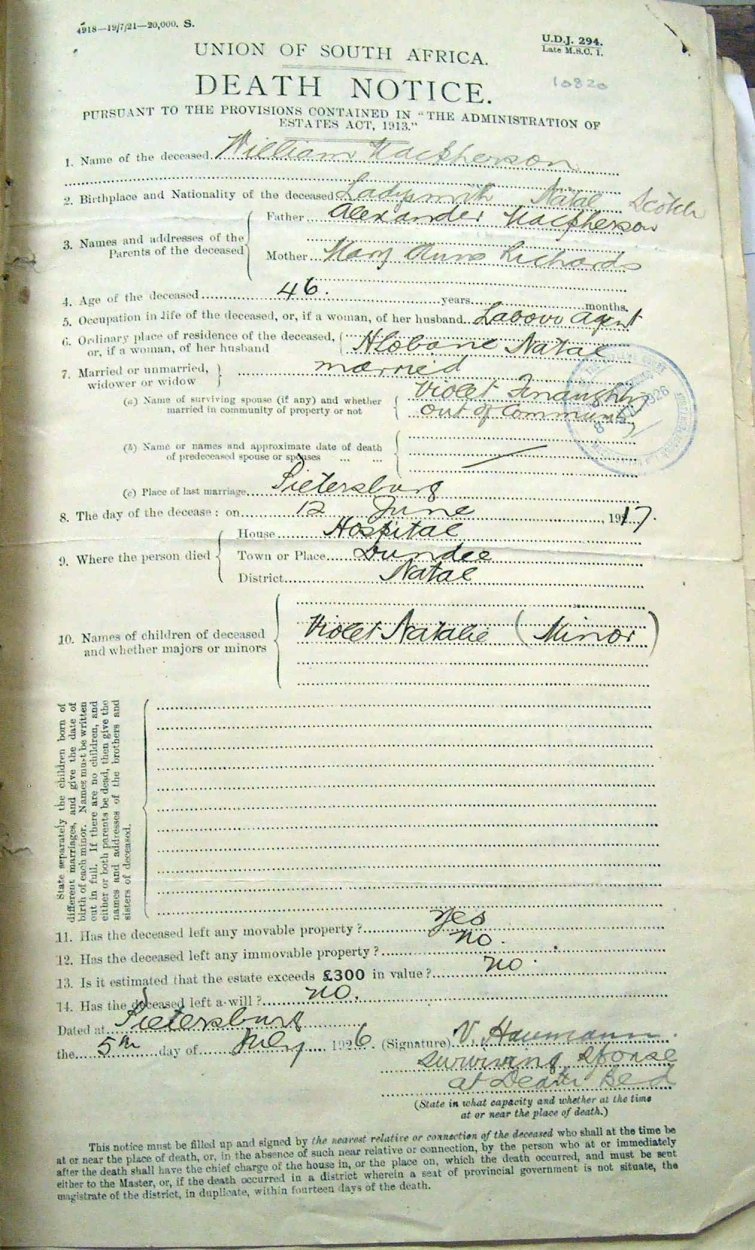 4918—19/7/21—20,000. S.
U.D.J. 294.
Late M.S.C. 1.
10820
UNION OF SOUTH AFRICA.
DEATH NOTICE.
PURSUANT TO THE PROVISIONS CONTAINED IN "THE ADMINISTRATION OF
ESTATES ACT, 1913."
1. Name of the deceased William Macpherson
2. Birthplace and Nationality of the deceased Ladysmith Natal Scotch
3. Names and addresses of the Parents of the deceased
Father Alexander Macpherson
Mother Mary Anne Richards
4. Age of the deceased 46. years months.
5. Occupation in life of the deceased, or, if a woman, of her husband Labour Agent
6. Ordinary place of residence of the deceased,
or, if a woman, of her husband Hlobane Natal
7. Married or unmarried,
widower or widow married
(a) Name of surviving spouse (if any) and whether Violet
married in community of property or not out of Community
(b) Name or names and approximate date of death
of predeceased spouse or spouses
(c) Place of last marriage Pietersburg
8. The day of the decease: on 12 June, 1917.
9. Where the person died
House Hospital
Town or Place Dundee
District Natal
10. Names of children of deceased
and whether majors or minors
Violet Natalie (Minor)
State separately the children born of
different marriages, and give the date of
birth of each minor. Names must be written
out in full. If there are no children, and
either or both parents be dead, then give the
names and addresses of the brothers and
sisters of deceased.
11. Has the deceased left any movable property? Yes
12. Has the deceased left any immovable property? no.
13. Is it estimated that the estate exceeds £300 in value? no.
14. Has the deceased left a will? no.
Dated at Pietersburg
the 5th day of July 1926. (Signature) V. Haumann.
surviving spouse
at Death Bed
(State in what capacity and whether at the time
at or near the place of death.)
This notice must be filled up and signed by the nearest relative or connection of the deceased who shall at the time be
at or near the place of death, or, in the absence of such near relative or connection, by the person who at or immediately
after the death shall have the chief charge of the house in, or the place on, which the death occurred, and must be sent
either to the Master, or, if the death occurred in a district wherein a seat of provincial government is not situate, the
magistrate of the district, in duplicate, within fourteen days of the death.